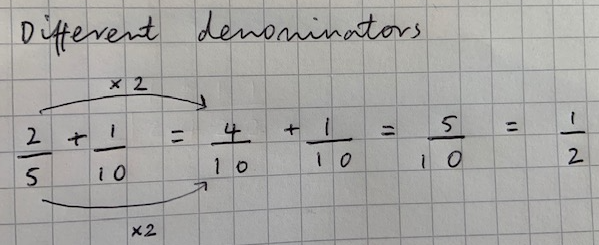 Different denominators
× 2
2/5 + 1/10 = 4/10 + 1/10 = 5/10 = 1/2
×2